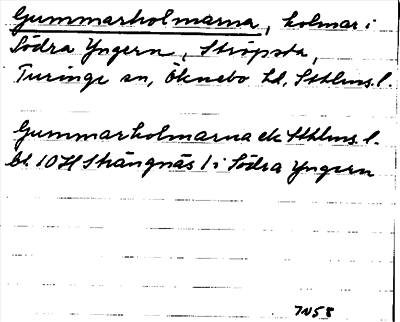 Gummarholmarna, holmar i
Södra Yngern, Ströpsta,
Turinge sn, Öknebo hd, Sthlms l.
Gummarholmarna ek Sthlms l.
bl. 10H Strängnäs l i Södra Yngern
7N58